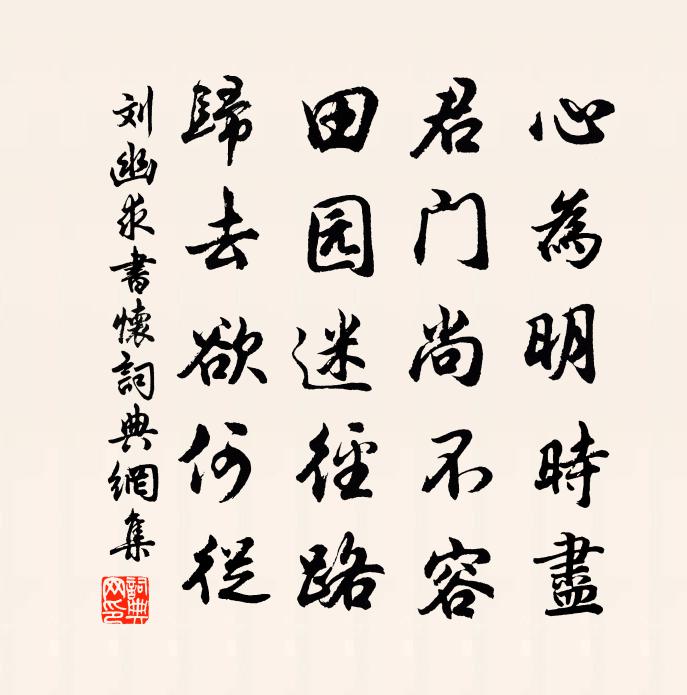 心為明時盡
君门尚不容
田园迷徑路
歸去欲何從
刘幽求書懷詞典網集
詞典网印